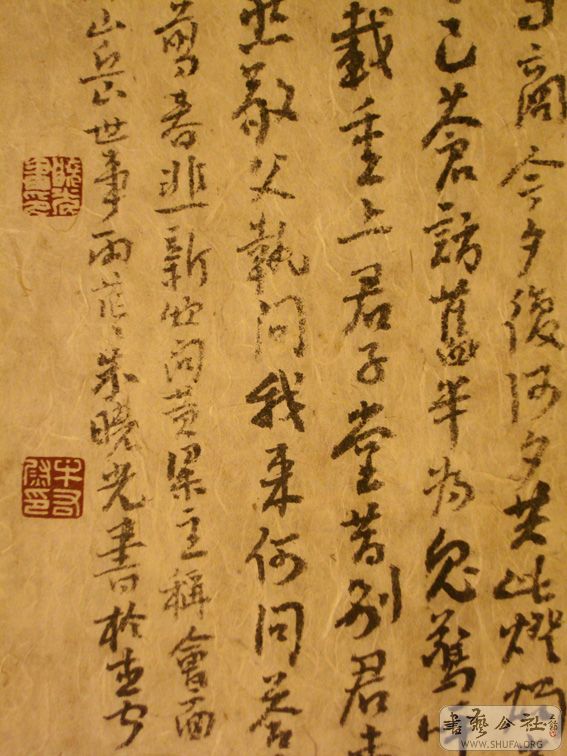 商今夕復何夕共此燈燭
已蒼訪舊半為鬼驚
載重上君子堂昔別君未
然敬父執問我来何問荅
剪春韭新炊間黄粱主稱會面
山岳世事兩茫〻朱曉光書於
書藝公社
WWW.SHUFA.ORG